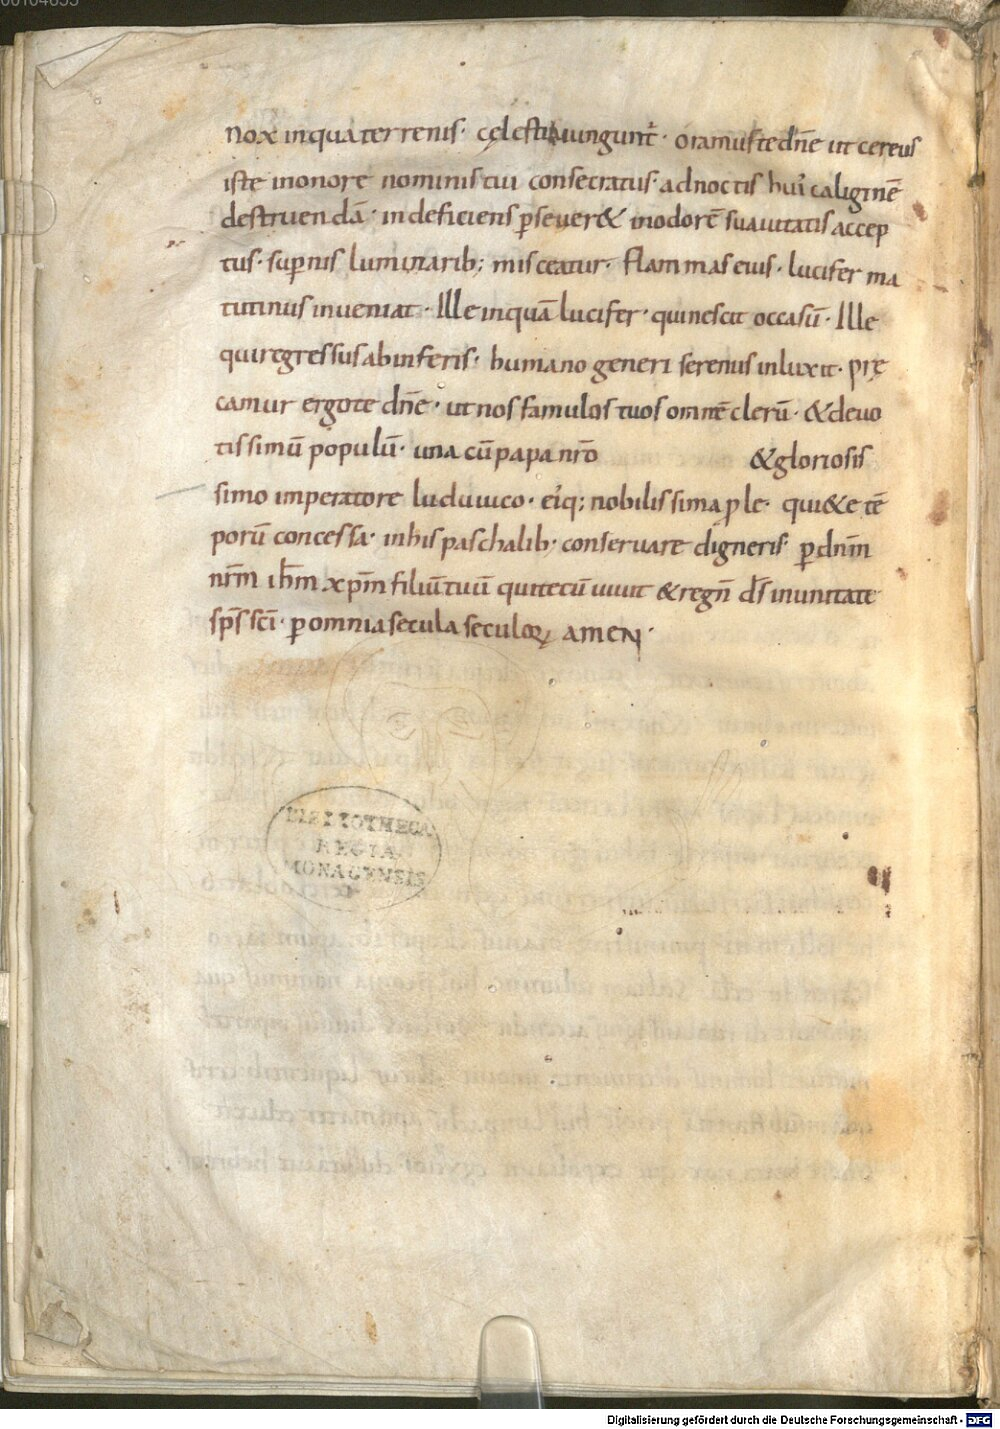 nox inqua terrenis· cęlestia iungunt̃· oramus te dn̄e ut cereus
iste inonore nominis tui consecratus· ad noctis hui᾽ caliginē
destruendā· indeficiens ꝑseuer& inodorē suauitatis accep
tus· suꝑnis luminarib; misceatur· flammas eius· lucifer ma
tutinus inueniat· Ille inquā lucifer· qui nescit occasū· Ille
qui regressus ab inferis· humano generi serenus inluxit· prę
camur ergo te dn̄e· ut nos famulos tuos omnē clerū· &deuo
tissimū populū· una cū papa nr̄o &gloriosis
simo imperatore luduuico· ei᾽q; nobilissima ꝓle· qui&e tē
porū concessa· inhis paschalib· conseruare digneris· ꝑ dn̄m
nr̄m ih̄m xp̄m filiū tuū qui tecū uiuit &regn̄ ds̄ inunitate
sp̄s sc̄i· ꝑ omnia secula seculoꝝ amen·
BIBLIOTHECA
REGIA
MONACENSIS
Digitalisierung gefördert durch die Deutsche Forschungsgemeinschaft - DFG